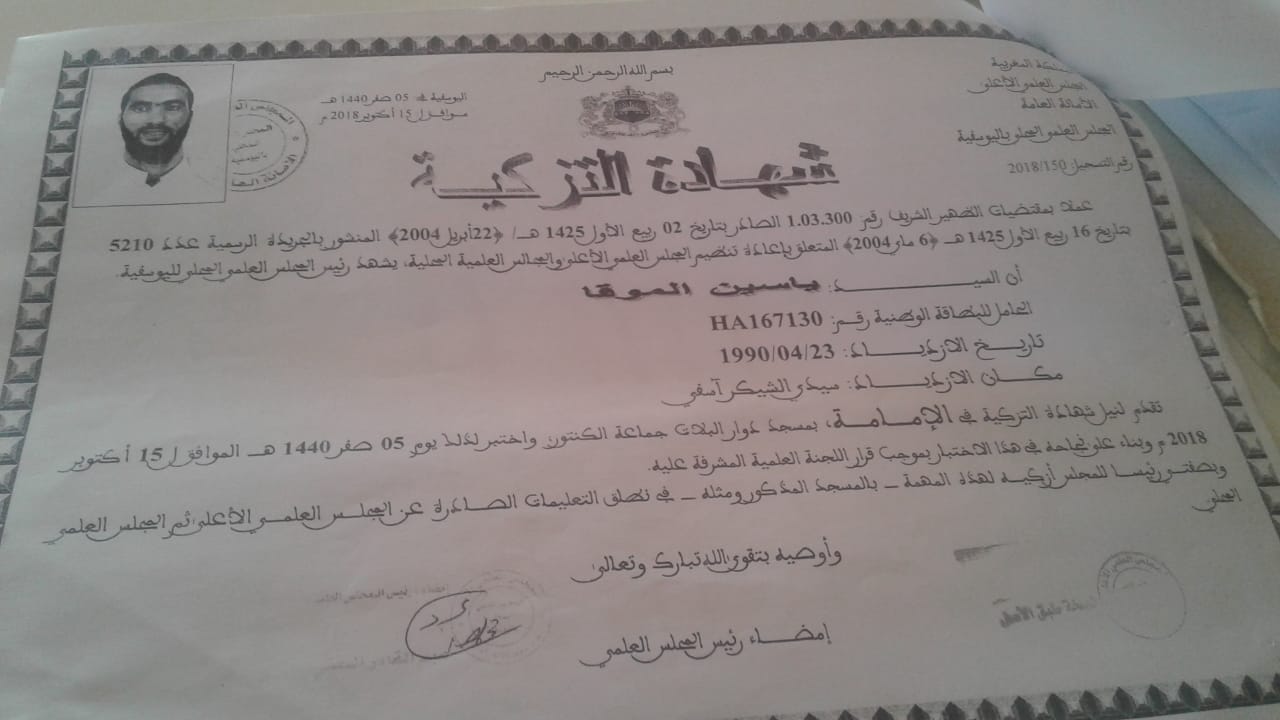 بسم الله الرحمن الرحيم
المملكة المغربية
المجلس العلمي الأعلى
الأمانة العامة
المجلس العلمي المحلي باليوسفية
رقم التسجيل 2018/150
اليوسفية في 05 صفر 1440 هـ
موافق ل 15 أكتوبر 2018 م
شهادة التزكية
عملا بمقتضيات الظهير الشريف رقم 1.03.300 الصادر بتاريخ 02 ربيع الأول 1425 هـ/ ﴿22أبريل 2004﴾ المنشور بالجريدة الرسمية عدد 5210
بتاريخ 16 ربيع الأول 1425 هـ ﴿6 ماي 2004﴾ المتعلق بإعادة تنظيم المجلس العلمي الأعلى والمجالس العلمية المحلية، يشهد رئيس المجلس العلمي المحلي لليوسفية.
أن السيد: ياسين الموقا
الحامل للبطاقة الوطنية رقم: HA167130
تاريخ الازدياد: 1990/04/23
مكان الازدياد: سيدي الشيكر آسفي
تقدم لنيل شهادة التزكية في الإمامة، بمسجد دوار البلات جماعة الكنتور واختبر لذلك يوم 05 صفر 1440 هـ الموافق ل 15 أكتوبر
2018 م وبناء على نجاحه في هذا الاختبار بموجب قرار اللجنة العلمية المشرفة عليه.
وبصفتي رئيسا للمجلس أزكيه لهذه المهمة – بالمسجد المذكور ومثله – في نطاق التعليمات الصادرة عن المجلس العلمي الأعلى ثم المجلس العلمي
المحلي
وأوصيه بتقوى الله تبارك وتعالى
إمضاء رئيس المجلس العلمي